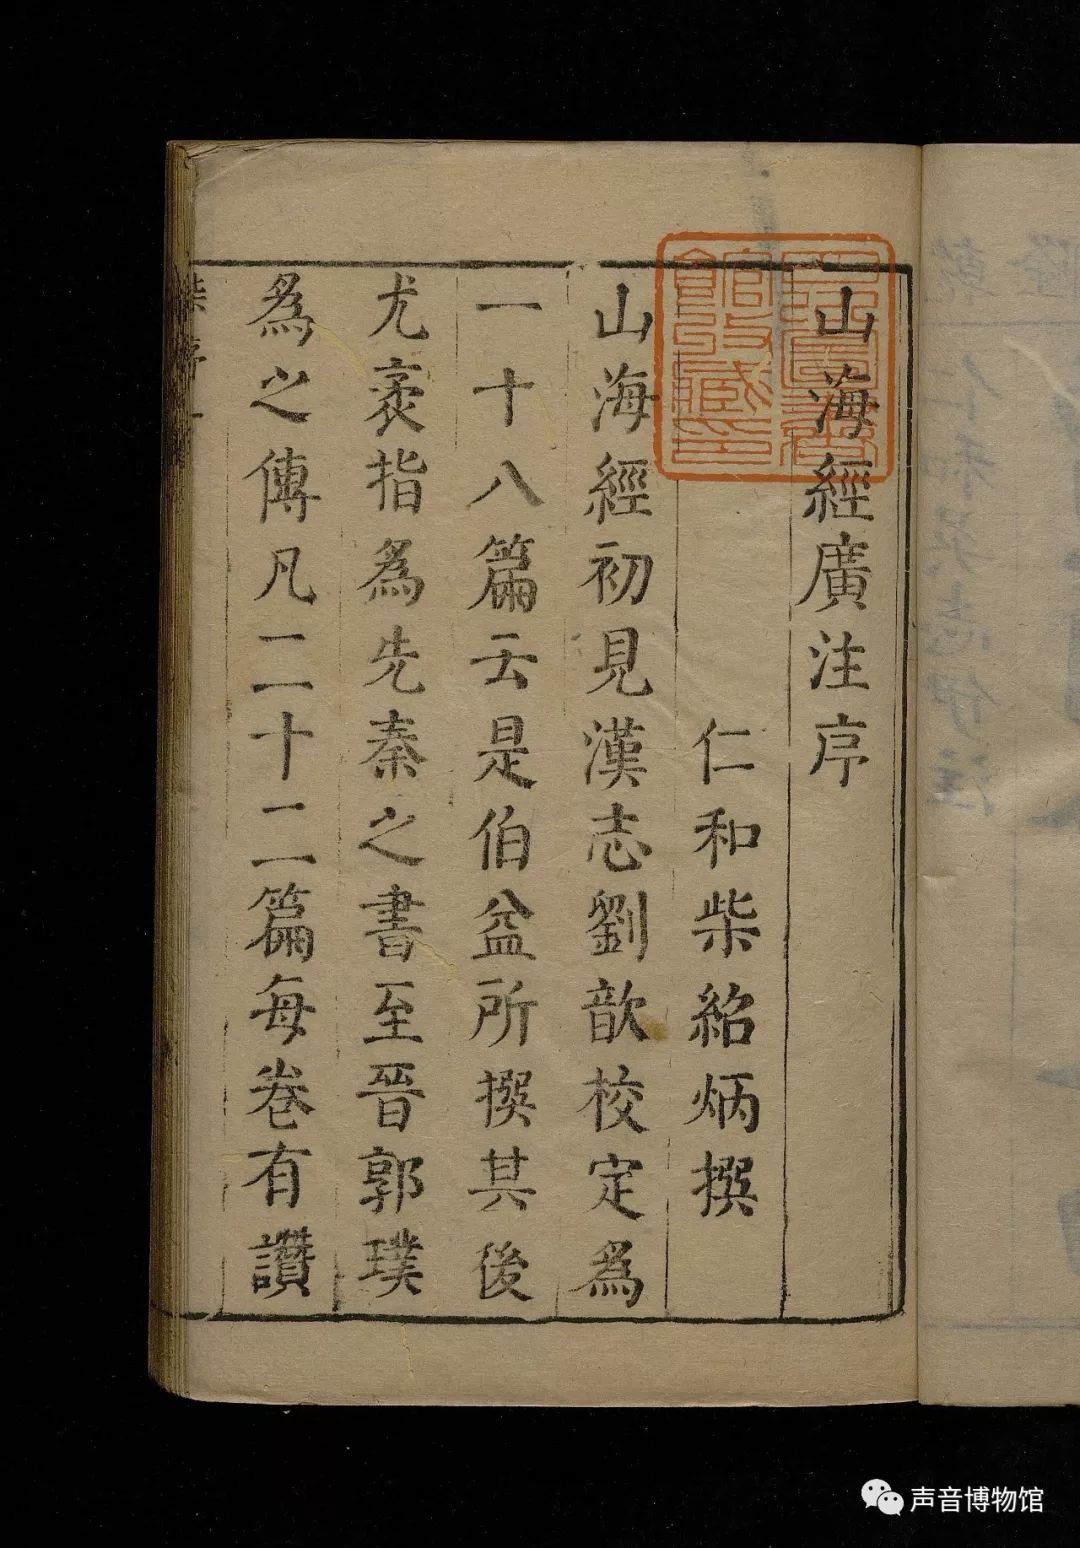 山海經廣注序
仁和柴紹炳撰
山海經初見漢志劉歆校定爲
一十八篇云是伯益所撰其後
尤袤指爲先秦之書至晉郭璞
爲之傳凡二十二篇每卷有讚
柴序一
声音博物馆